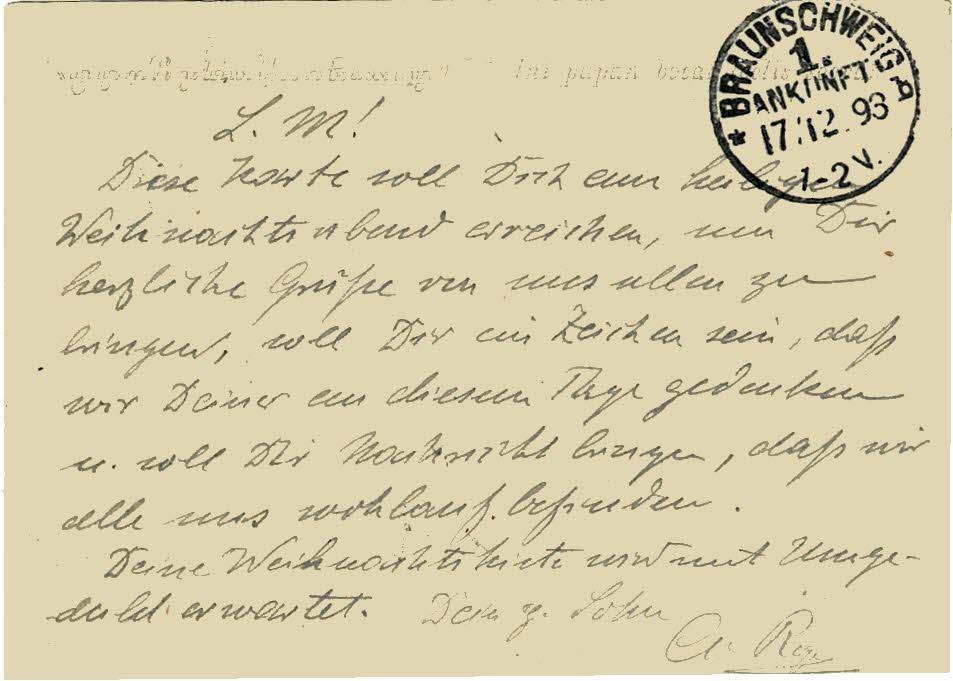 BRAUNSCHWEIG
1.
ANKUNFT
17.12.93
1-2 V.
L. M!
Diese Karte soll Dich am heiligen
Weihnachtsabend erreichen, um Dir
herzliche Grüße von uns allen zu
bringen, soll Dir ein Zeichen sein, daß
wir Deiner an diesem Tage gedenken
u. soll Dir Nachricht bringen, daß wir
alle uns wohlauf befinden.
Deine Weihnachtskiste wird mit Unge-
duld erwartet. Dein g. Sohn